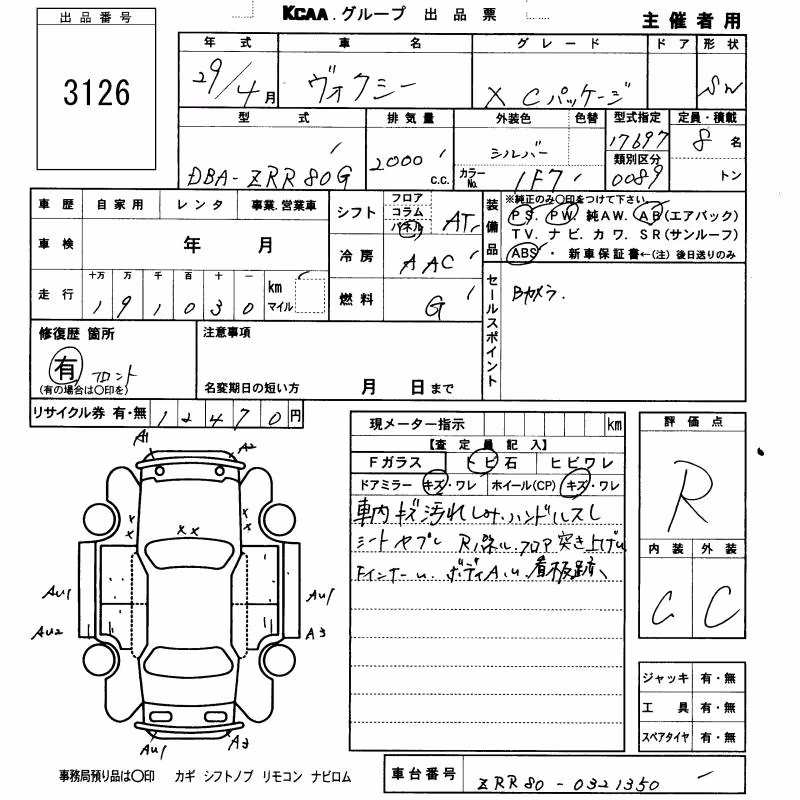 出品番号
3126
KCAA.グループ 出品票
主催者用
年式 車名 グレード ドア 形状
29/4月 ヴォクシー X Cパッケージ SW
型式 排気量 外装色 色替 型式指定 定員・積載
DBA-ZRR80G 2000 c.c. シルバー 17697 8名
カラーNo. 1F7 類別区分 0089 トン
車歴 自家用 レンタ 事業.営業車
車検 年 月
走行 十万 万 千 百 十 一 km マイル
191030
シフト フロア コラム パネル AT
冷房 AAC
燃料 G
装備品 ※純正のみ○印をつけて下さい
PS. PW. 純AW. AB(エアバック)
TV. ナビ. カワ. SR(サンルーフ)
ABS・新車保証書←(注)後日送りのみ
セールスポイント Bカメラ.
修復歴 箇所
有 フロント
(有の場合は○印を)
注意事項
名変期日の短い方 月 日まで
リサイクル券 有・無 12470円
現メーター指示 km
【査定員記入】
Fガラス トビ石 ヒビワレ
ドアミラー キズ・ワレ ホイール(CP) キズ・ワレ
車内キズ汚れしみ.ハンドルスレ
シートヤブレ Rパネル.フロア突き上げ
ボディ 看板跡
評価点
R
内装 外装
C C
A1 A2
AU1 AU1
AU2 A3
AU1 A3
ジャッキ 有・無
工具 有・無
スペアタイヤ 有・無
事務局預り品は○印 カギ シフトノブ リモコン ナビロム
車台番号 ZRR80-0321350